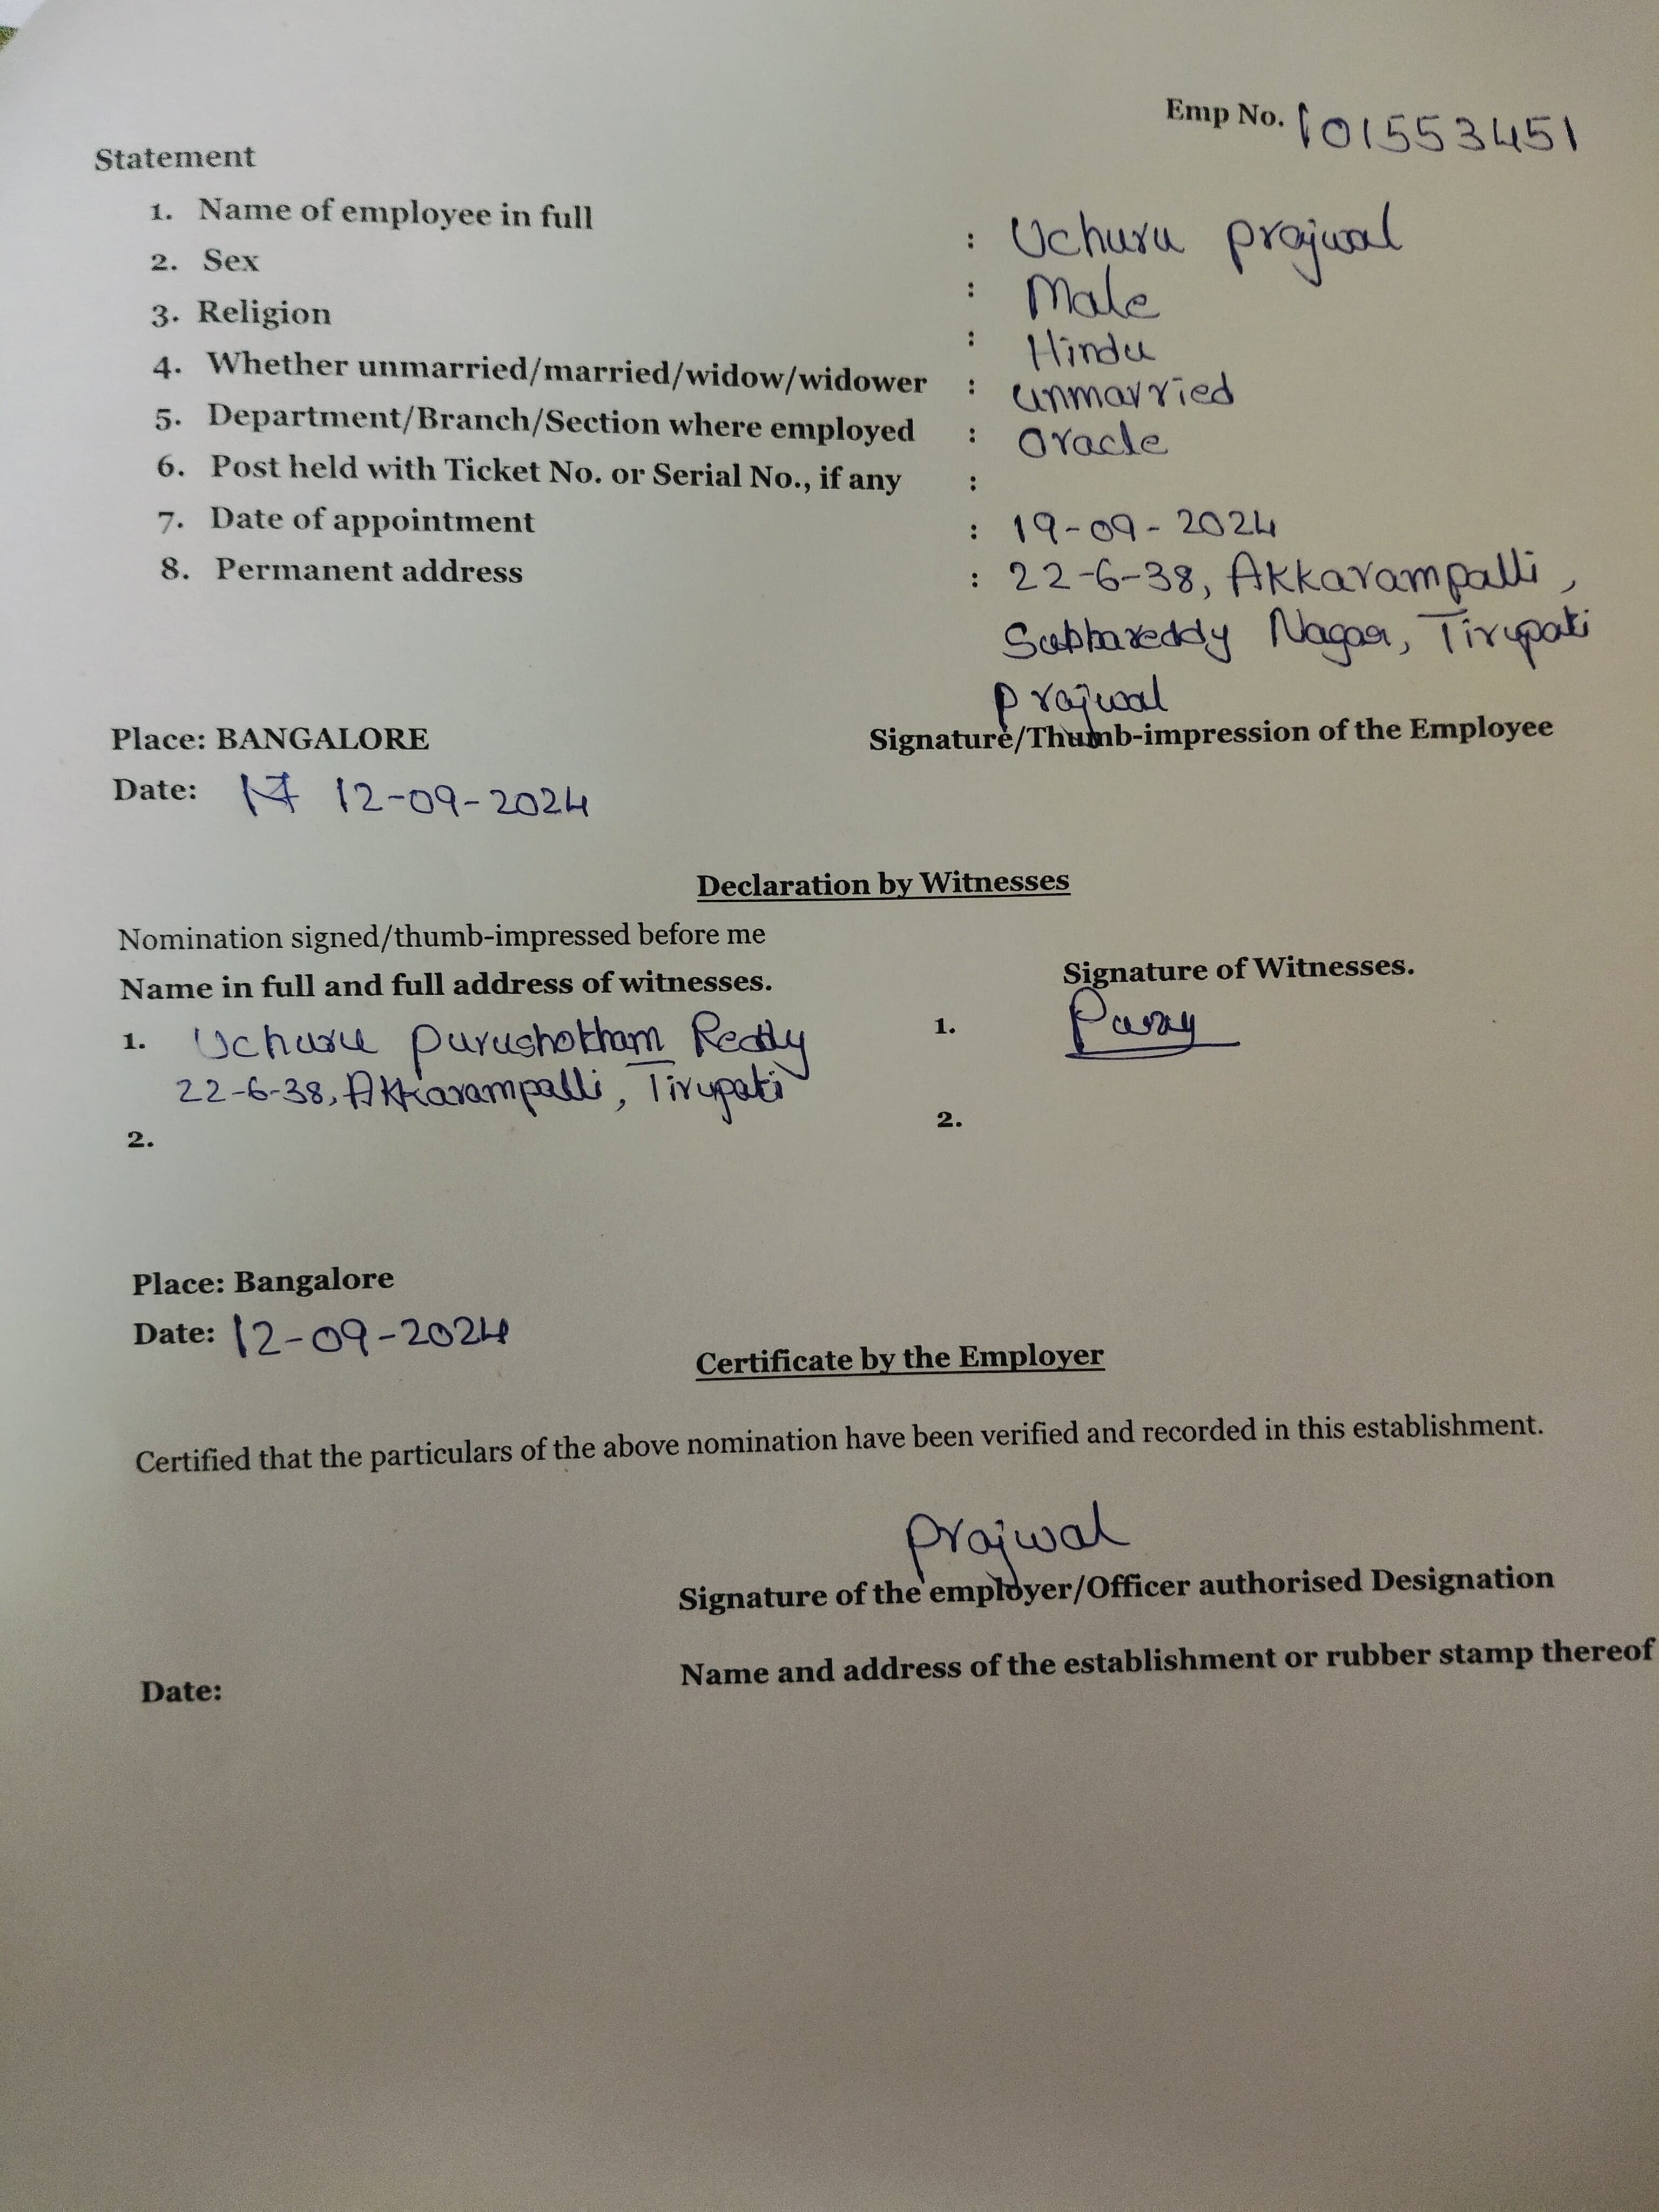 Emp No. 101553451
Statement
1. Name of employee in full : Uchuru prajwal
2. Sex : Male
3. Religion : Hindu
4. Whether unmarried/married/widow/widower : unmarried
5. Department/Branch/Section where employed : Oracle
6. Post held with Ticket No. or Serial No., if any :
7. Date of appointment : 19-09-2024
8. Permanent address : 22-6-38, Akkarampalli,
Subbareddy Nagar, Tirupati
prajwal
Place: BANGALORE Signature/Thumb-impression of the Employee
Date: 12-09-2024
Declaration by Witnesses
Nomination signed/thumb-impressed before me
Name in full and full address of witnesses. Signature of Witnesses.
1. Uchuru purushotham Reddy 1.
22-6-38, Akkarampalli, Tirupati
2. 2.
Place: Bangalore
Date: 12-09-2024
Certificate by the Employer
Certified that the particulars of the above nomination have been verified and recorded in this establishment.
prajwal
Signature of the employer/Officer authorised Designation
Name and address of the establishment or rubber stamp thereof
Date: